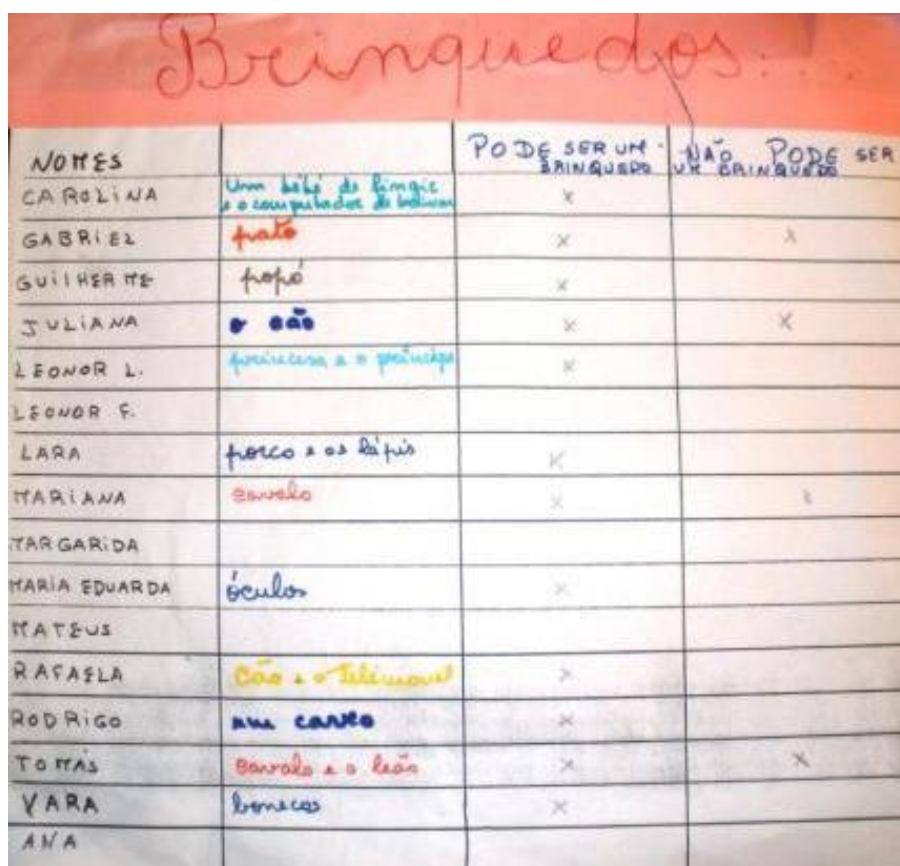 Brinquedos....
NOMES PODE SER UM BRINQUEDO NÃO PODE SER UM BRINQUEDO
CAROLINA Um bébé de fingir e o computador de brincar x
GABRIEL prato x x
GUILHERME popó x
JULIANA o cão x x
LEONOR L. princesa e o príncipe x
LEONOR F.
LARA porco e os lápis x
MARIANA cavalo x x
MARGARIDA
MARIA EDUARDA óculos x
MATEUS
RAFAELA Cão e o telemovel x
RODRIGO um carro x
TOMÁS cavalo e o leão x x
YARA bonecos x
ANA